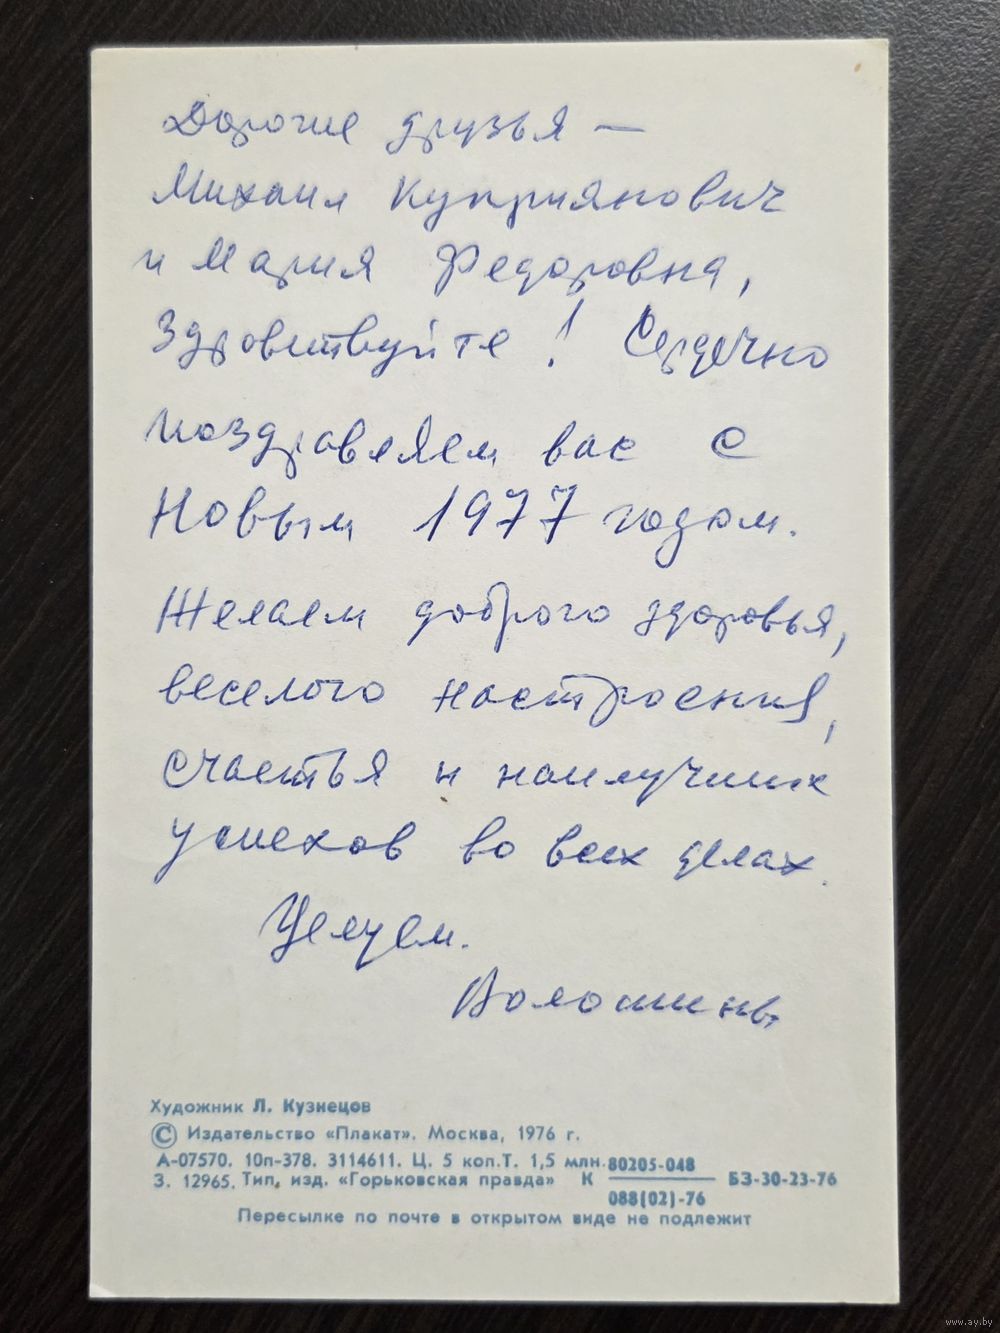 Дорогие друзья —
Михаил Куприянович
и Мария Федоровна,
Здравствуйте! Сердечно
поздравляем вас с
Новым 1977 годом.
Желаем доброго здоровья,
веселого настроения,
счастья и наилучших
успехов во всех делах.
Целуем.
Волошины
Художник Л. Кузнецов
© Издательство «Плакат». Москва, 1976 г.
А-07570. 10п-378. 3114611. Ц. 5 коп. Т. 1,5 млн. 80205-048
З. 12965. Тип. изд. «Горьковская правда» К 088(02)-76 БЗ-30-23-76
Пересылке по почте в открытом виде не подлежит
www.ay.by